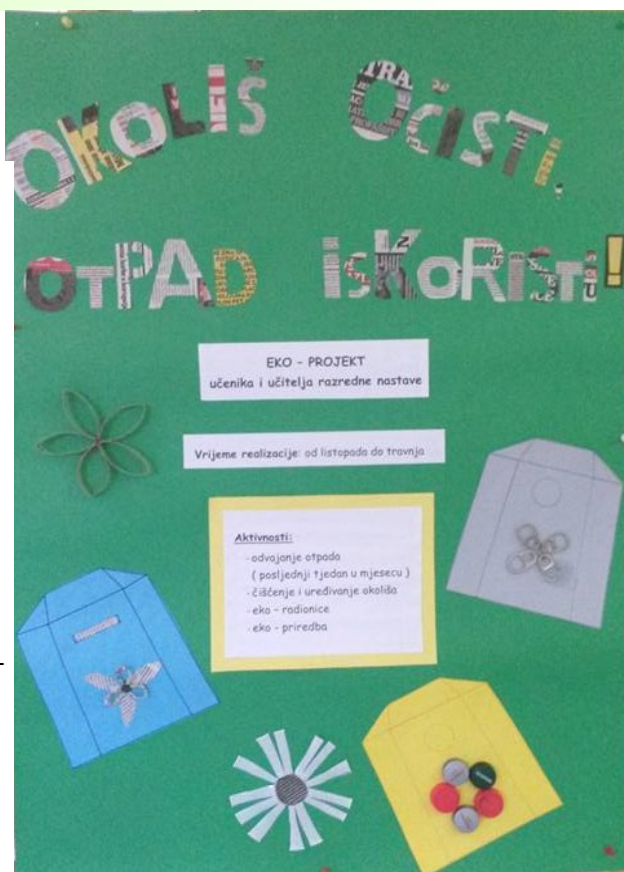 OKOLIŠ OČISTI,
OTPAD ISKORISTI!
EKO - PROJEKT
učenika i učitelja razredne nastave
Vrijeme realizacije: od listopada do travnja
Aktivnosti:
- odvajanje otpada
( posljednji tjedan u mjesecu )
- čišćenje i uređivanje okoliša
- eko - radionice
- eko - priredba